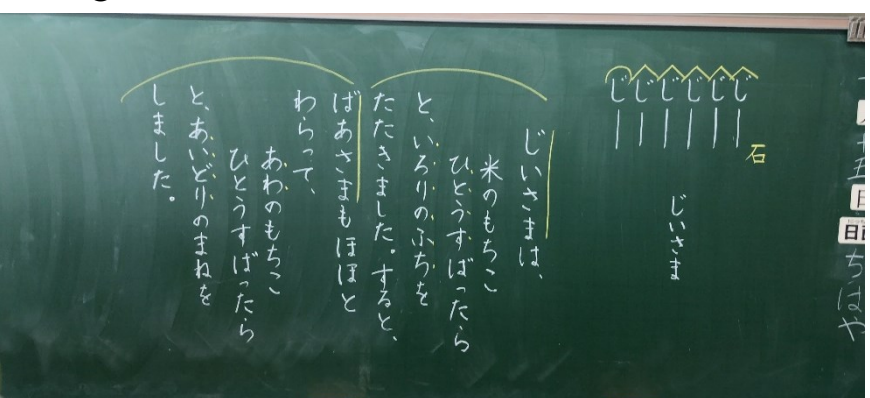 じじじじじじ
石
じいさま
じいさまは、
米のもちこ
ひとうすばったら
と、いろりのふちを
たたきました。すると、
ばあさまもほほと
わらって、
あわのもちこ
ひとうすばったら
と、あいどりのまねを
しました。